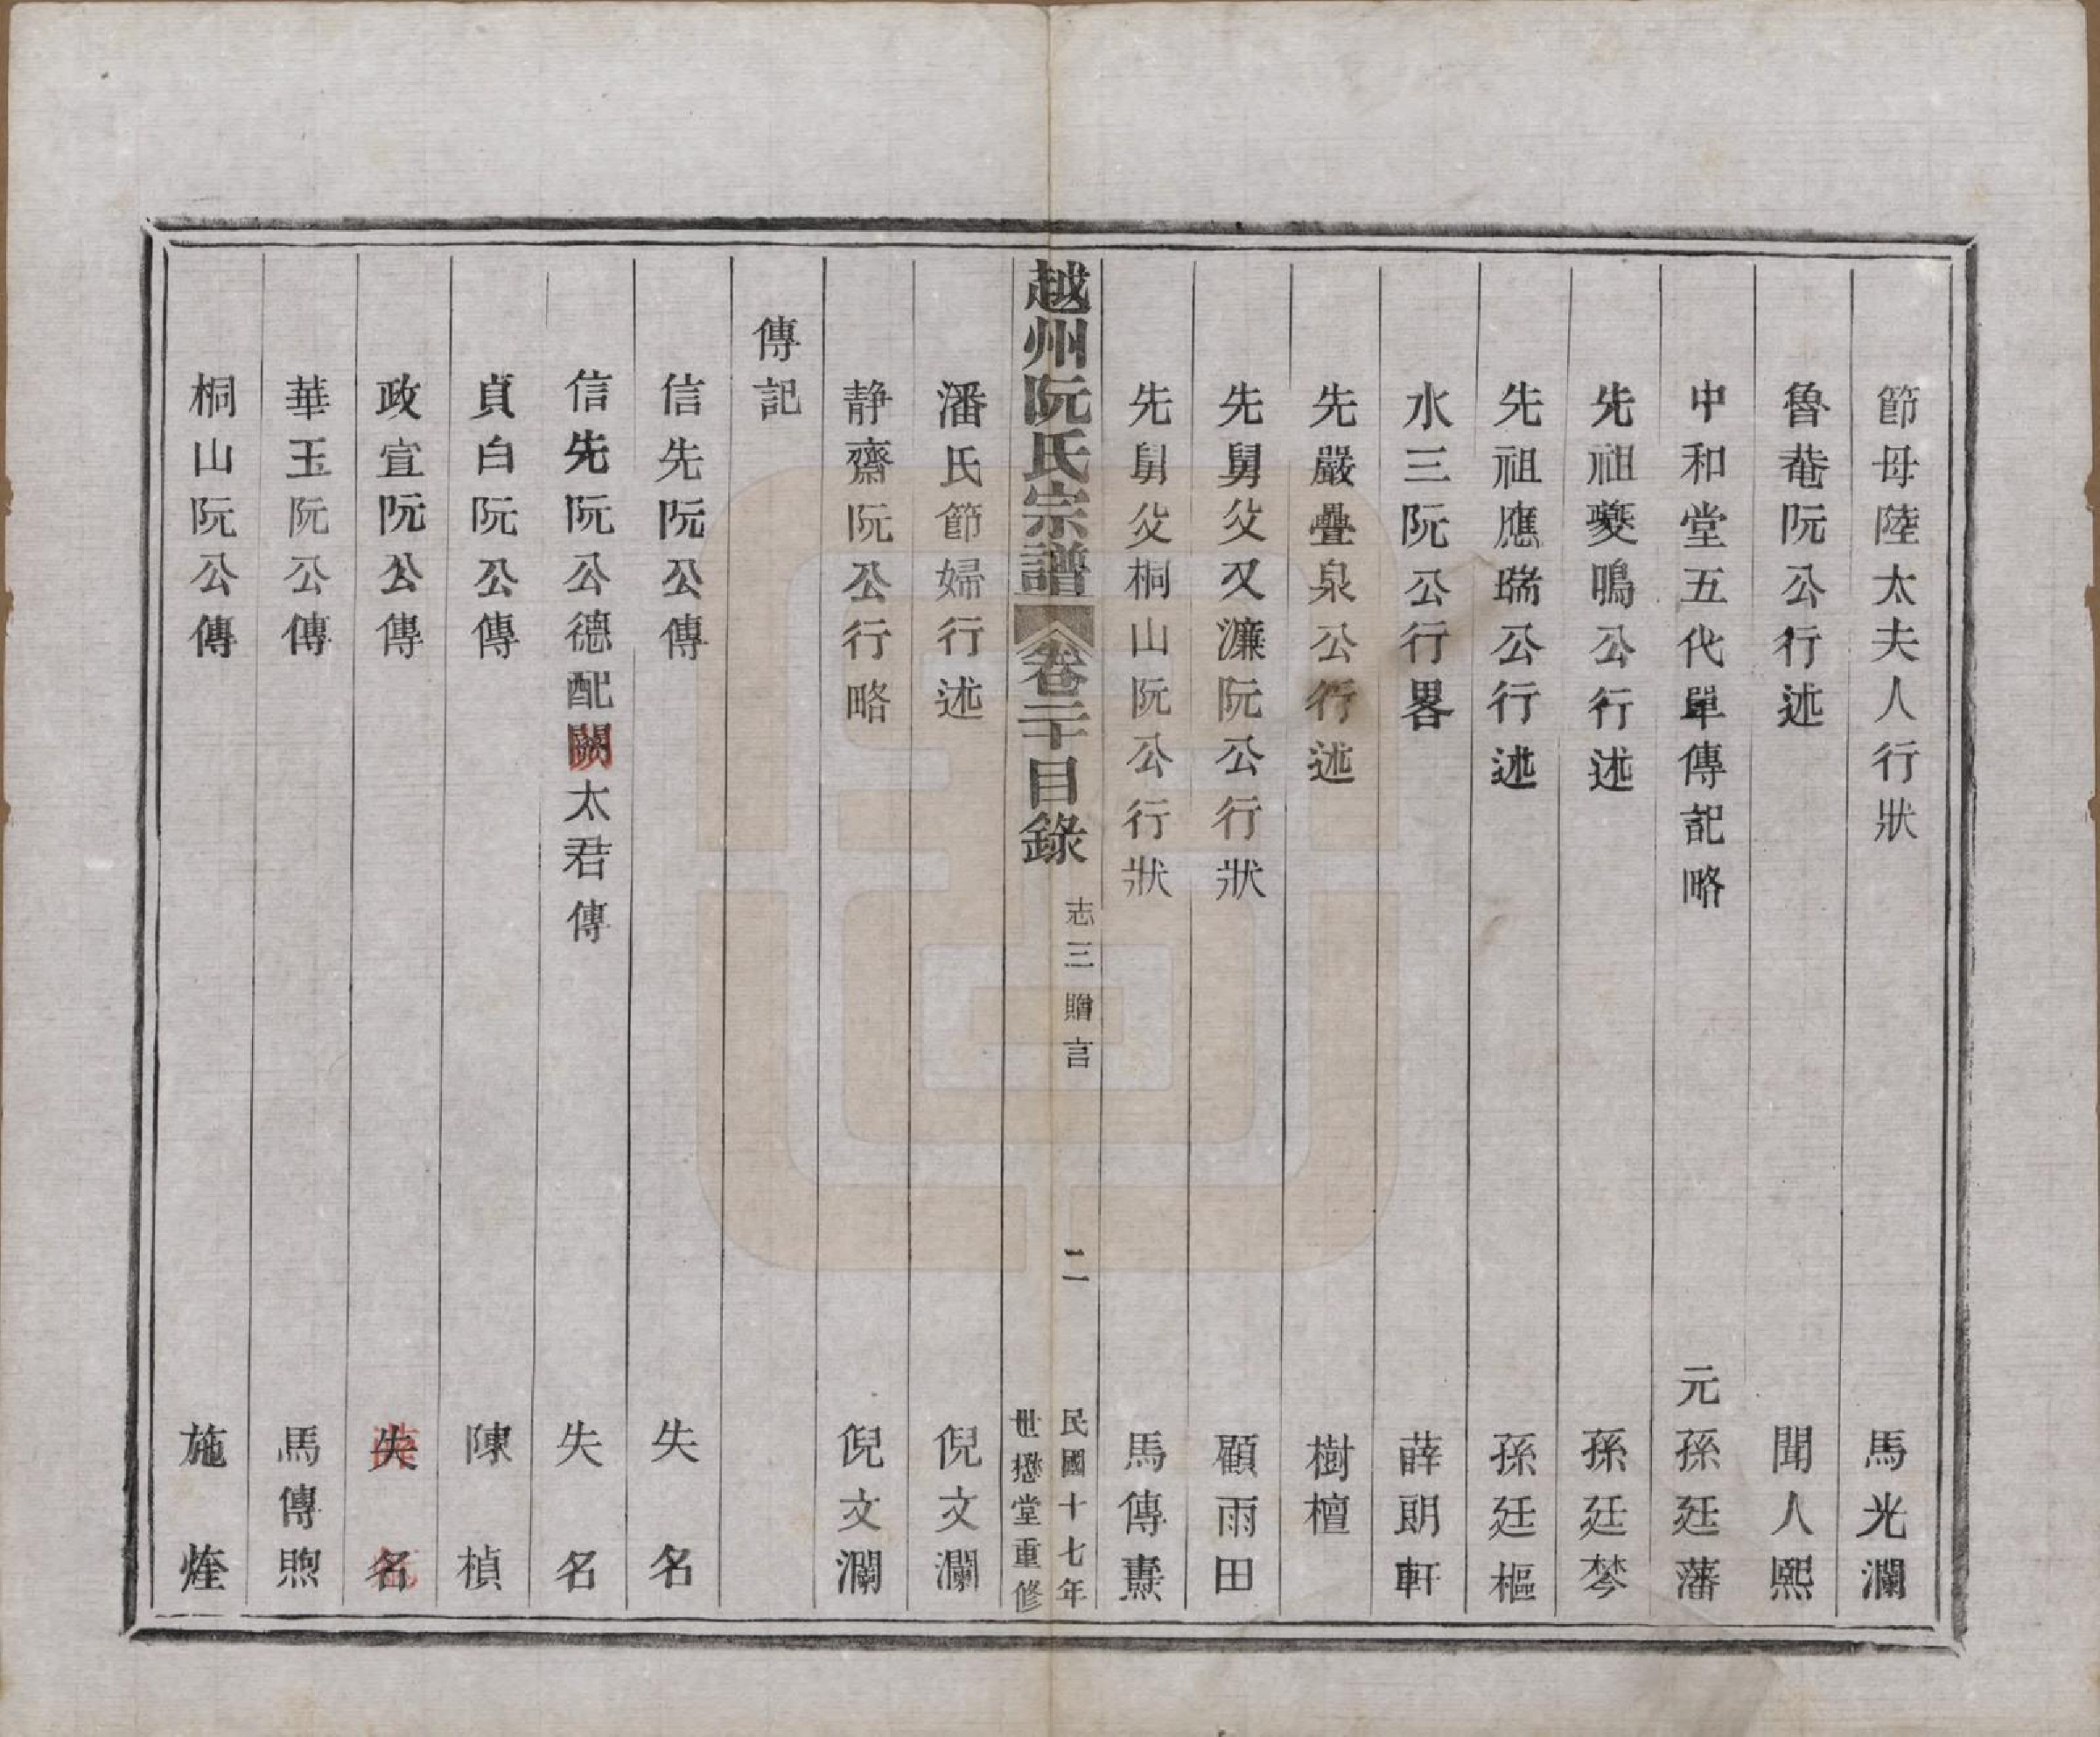 節母陸太夫人行狀 馬光瀾
魯菴阮公行述 聞人熙
中和堂五代單傳記略 元孫廷藩
先祖夔鳴公行述 孫廷棽
先祖應瑞公行述 孫廷樞
水三阮公行畧 薛朗軒
先嚴疊泉公行述 樹檀
先舅父又濂阮公行狀 顧雨田
先舅父桐山阮公行狀 馬傳燾
越州阮氏宗譜 卷二十目錄 志三 贈言 二 民國十七年
世懋堂重修
潘氏節婦行述 倪文瀾
靜齋阮公行略 倪文瀾
傳記
信先阮公傳 失名
信先阮公德配闕太君傳 失名
貞白阮公傳 陳楨
政宣阮公傳 失名
華玉阮公傳 馬傳煦
桐山阮公傳 施煃